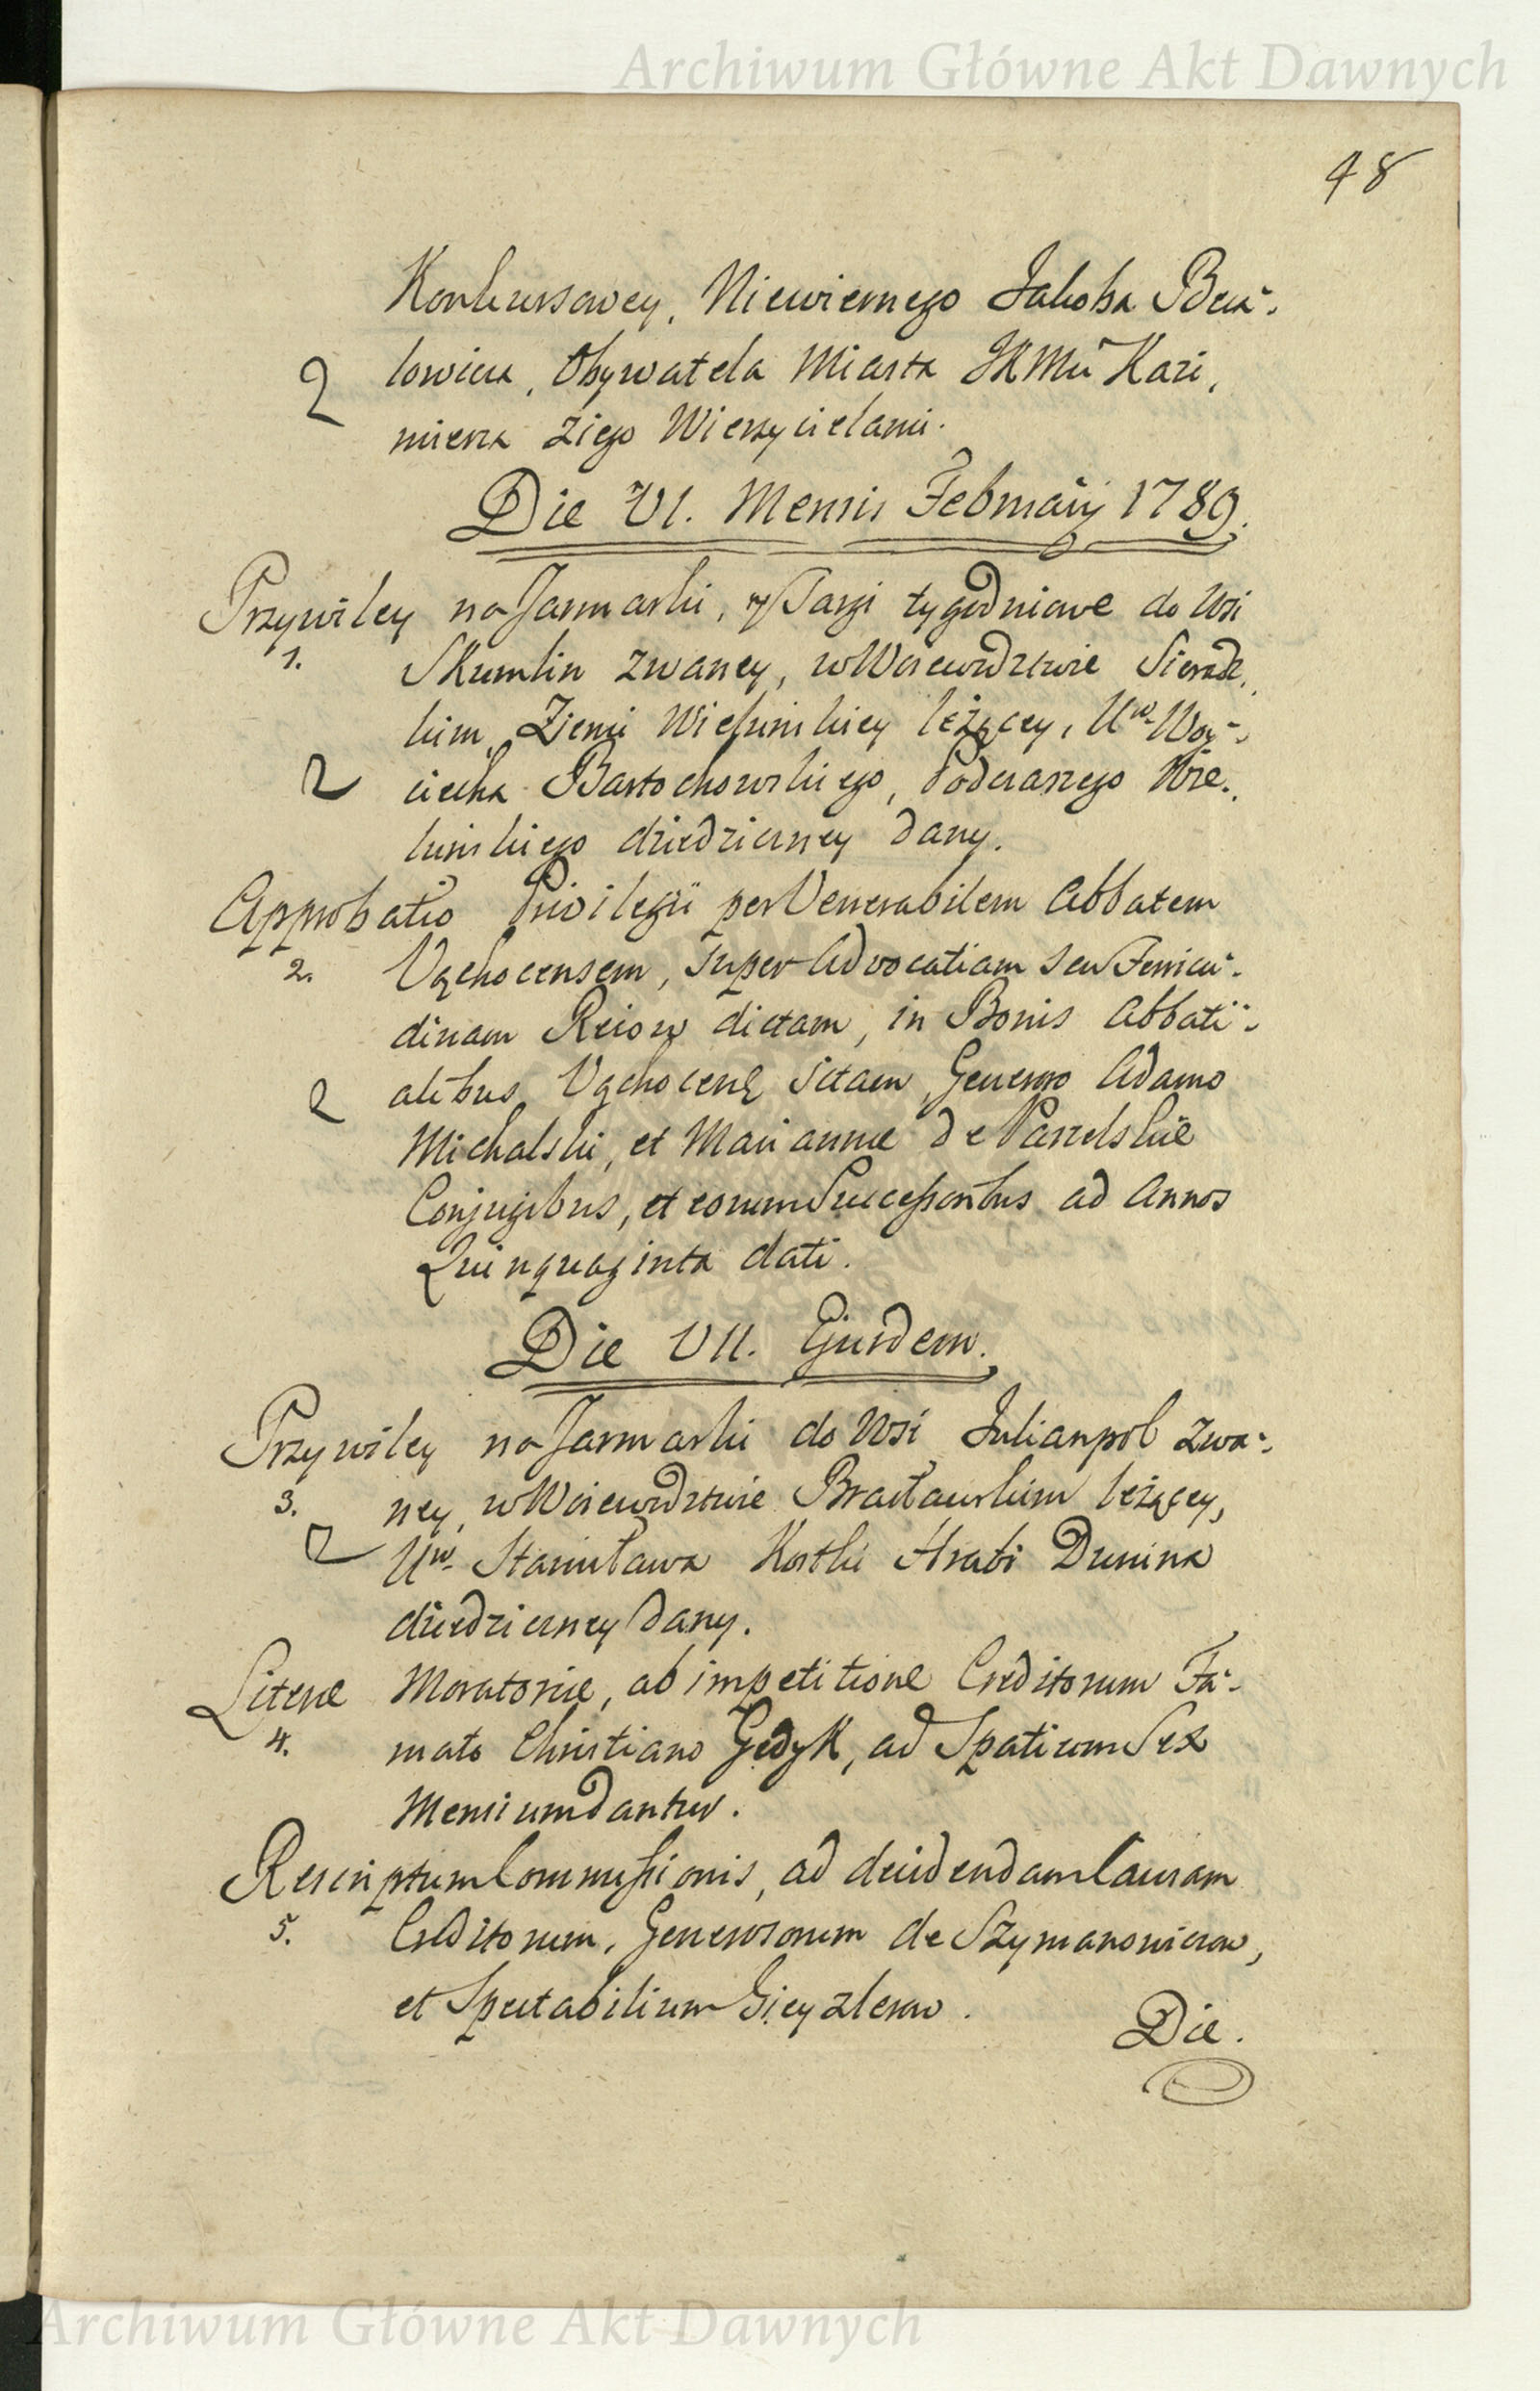 Archiwum Główne Akt Dawnych
48
Konkursowey, Niewiernego Jakoba Bera-
lowicza, Obywatela Miasta JKMci Kazi,
mierza z iego Wierzycielami.
Die VI. Mensis Februarij 1789.
Przywiley na Jarmarki, y Targi tygodniowe do Wsi
1. Skumlin zwaney, w Woiewodztwie Sieradz,
kim, Ziemi Wieluńskiey leżącey, Uro Woy-
ciecha Bartochowskiego, Podczaszego Wie-
luńskiego dziedziczney dany.
Approbatio Privilegii per Venerabilem Abbatem
2. Vąchocensem, super Advocatiam seu Ferricu-
dinam Reiow dictam, in Bonis Abbati-
alibus Vąchocens sitam, Generoso Adamo
Michalski, et Mariannae de Paszelskie
Conjugibus, et eorum Successoribus ad Annos
Quinquaginta dati.
Die VII. Ejusdem.
Przywiley na Jarmarki do Wsi Julianpol zwa-
3. ney, w Woiewodztwie Bracławskim leżącey,
Uro Stanisława Kostki Hrabi Dunina
dziedziczney dany.
Literae Moratoriae, ab impetitione Creditorum Fa-
4. mato Christiano Gedyk, ad Spatium Sex
Mensium dantur.
Rescriptum Commissionis, ad decidendam Causam
5. Creditorum, Generosorum de Szymanowiczow,
et Spectabilium Gieyzlerow.
Die.
Archiwum Główne Akt Dawnych